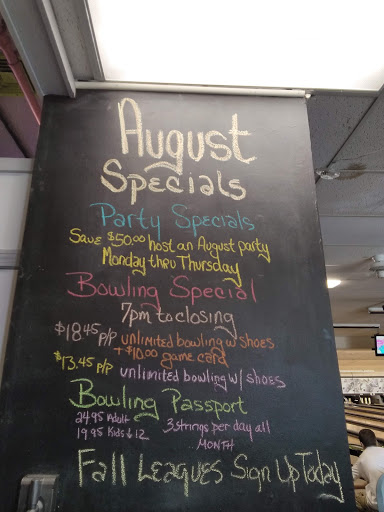 August
Specials
Party Specials
Save $50.00 host an August party
Monday thru Thursday
Bowling Special
7pm to closing
$18.45 p/p unlimited bowling w/ shoes
+ $10.00 game card
$13.45 p/p unlimited bowling w/ shoes
Bowling Passport
24.95 Adult
19.95 Kids ↓ 12
3 strings per day all
MONTH
Fall Leagues Sign Up Today